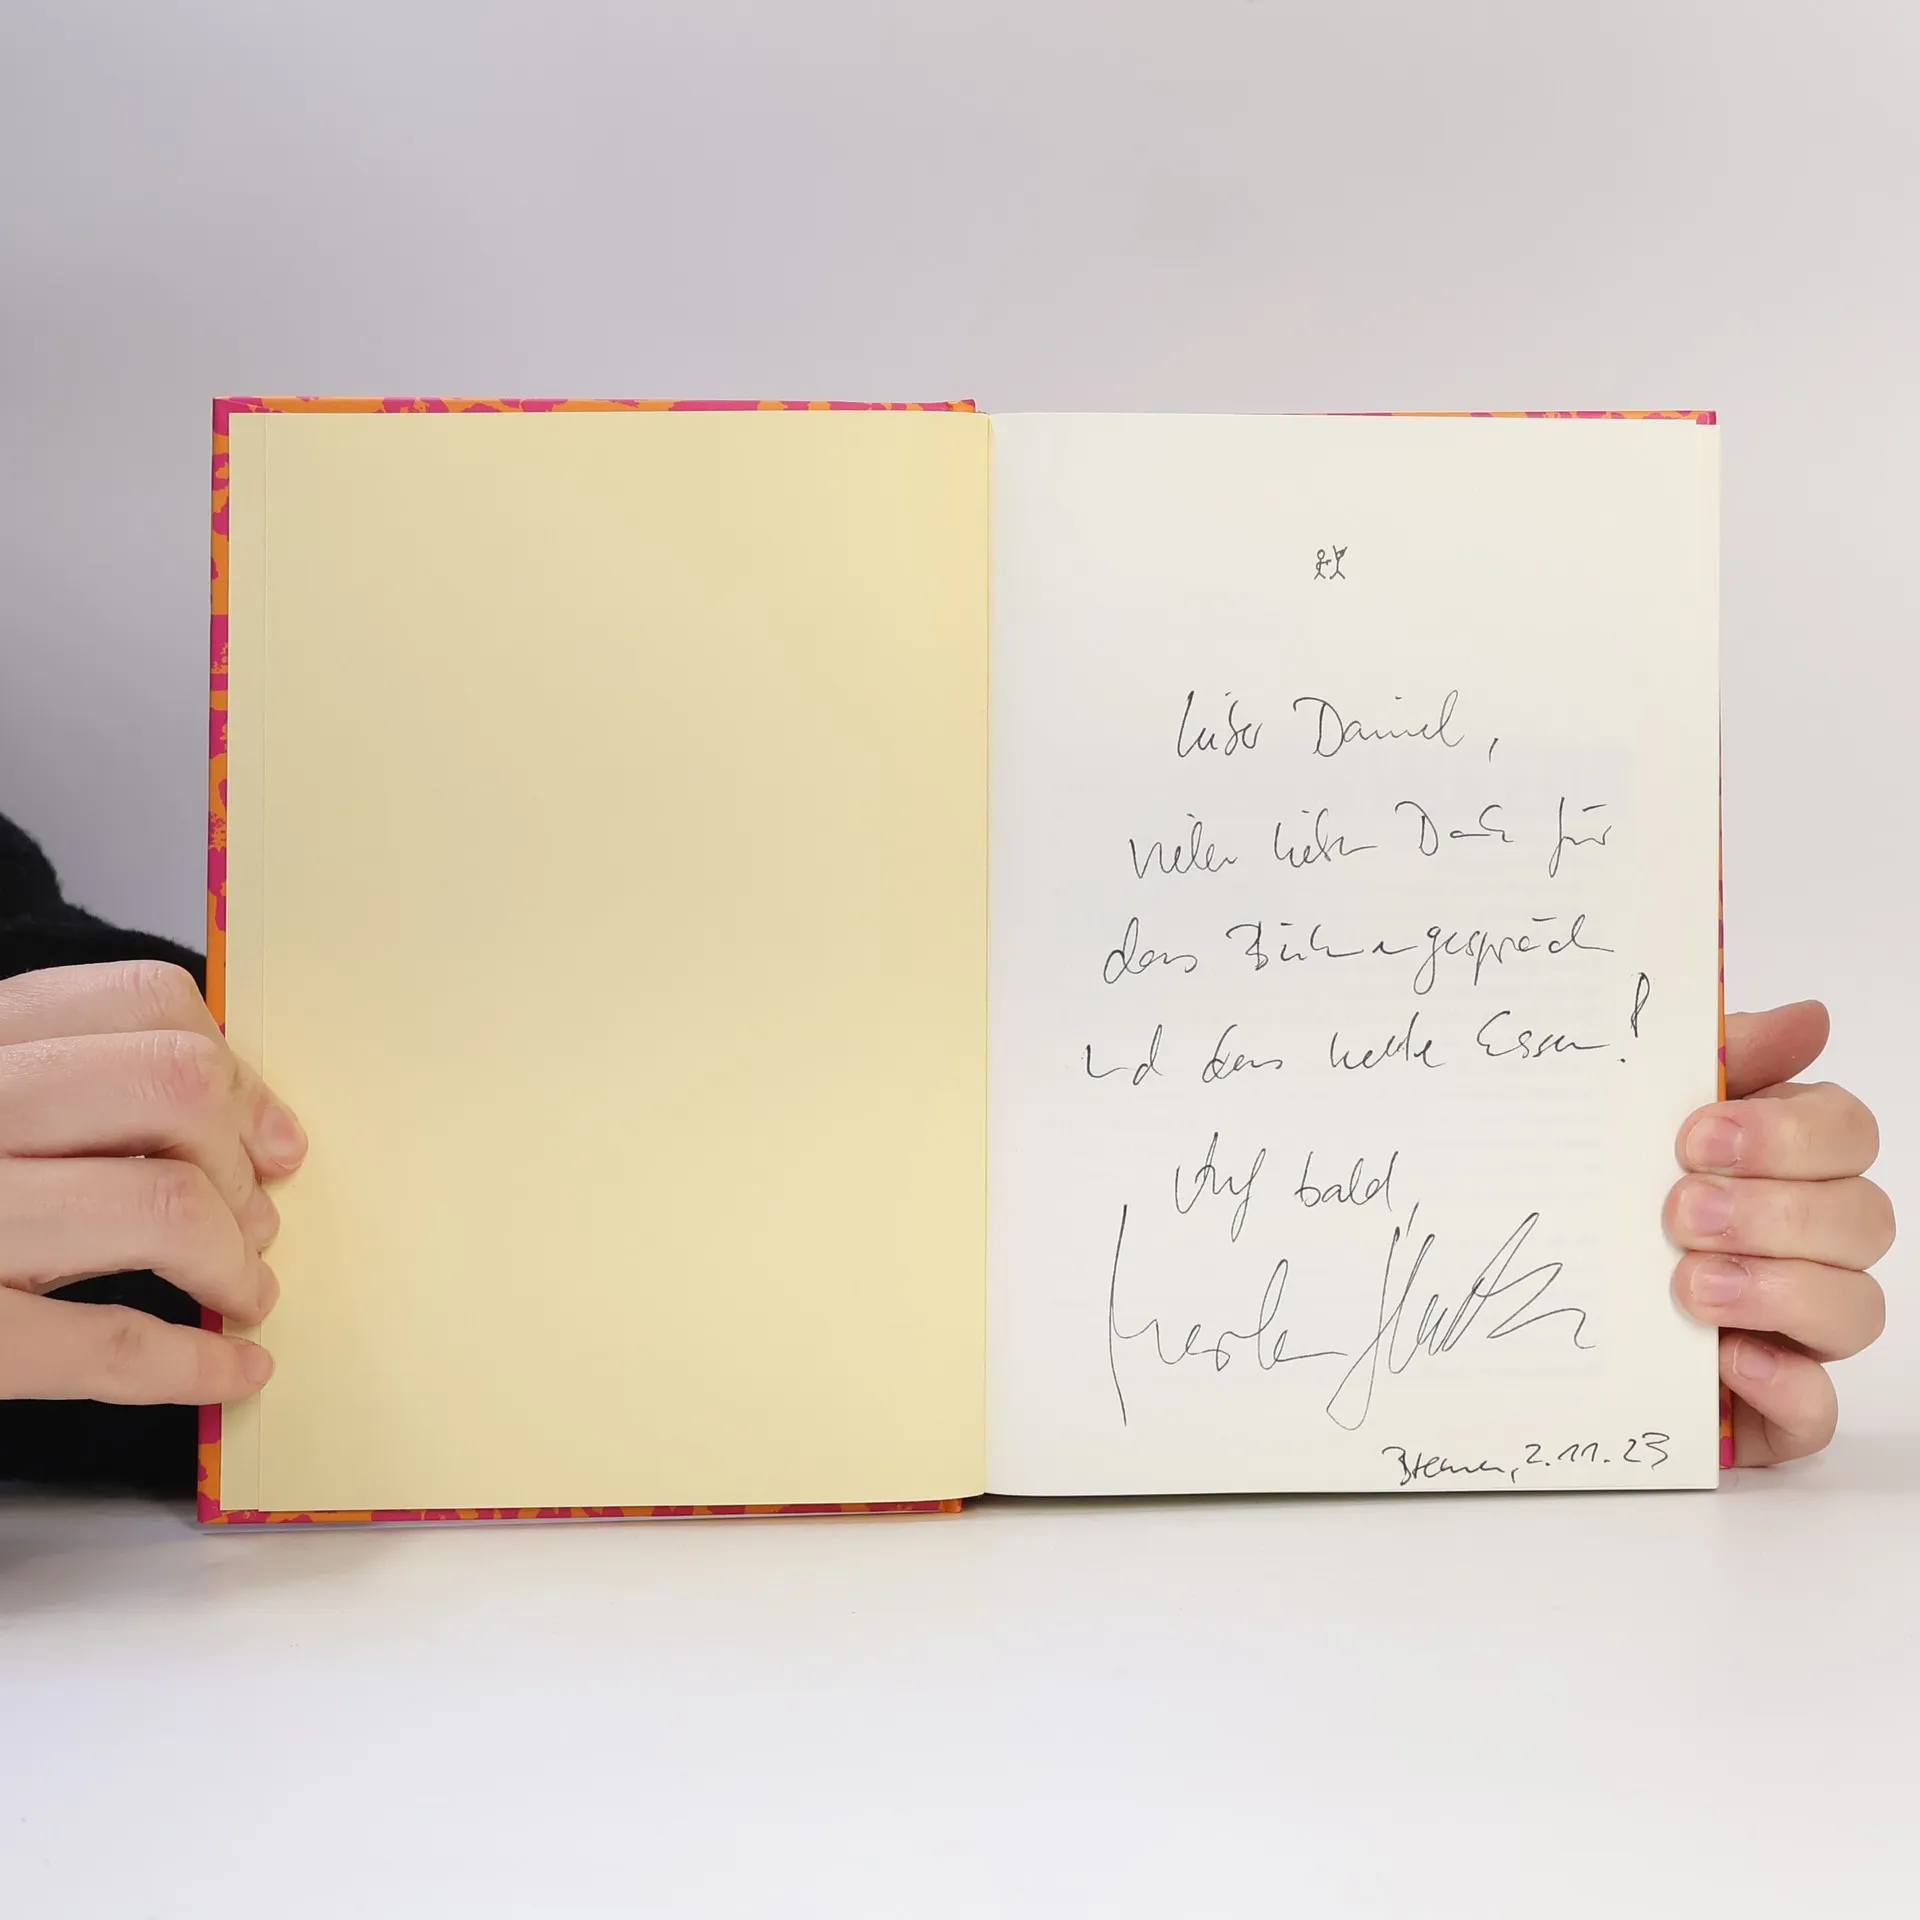 Lieber Daniel,
vielen lieben Dank für
das Bühnengespräch
und das Essen!
Auf bald,
Bremen, 2.11.23